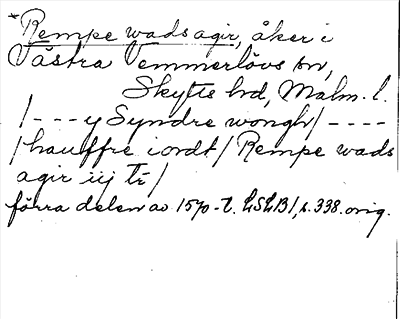 *Rempe wads agir, åker i
Västra Vemmerlövs sn,
Skytts hd, Malm. l.
/---y Syndre wongh/----
/hauffre iordt/ Rempe wads
agir iij tr/
förra delen av 1570-t. LSLB1, s. 338. orig.